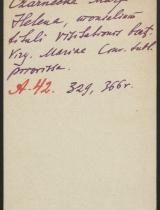 Czarnecka Marja
Helena, monialium
tituli Visitationis beat.
Virg. Mariae Conv. Lubl.
priorissa.
A-42. 329, 366v.